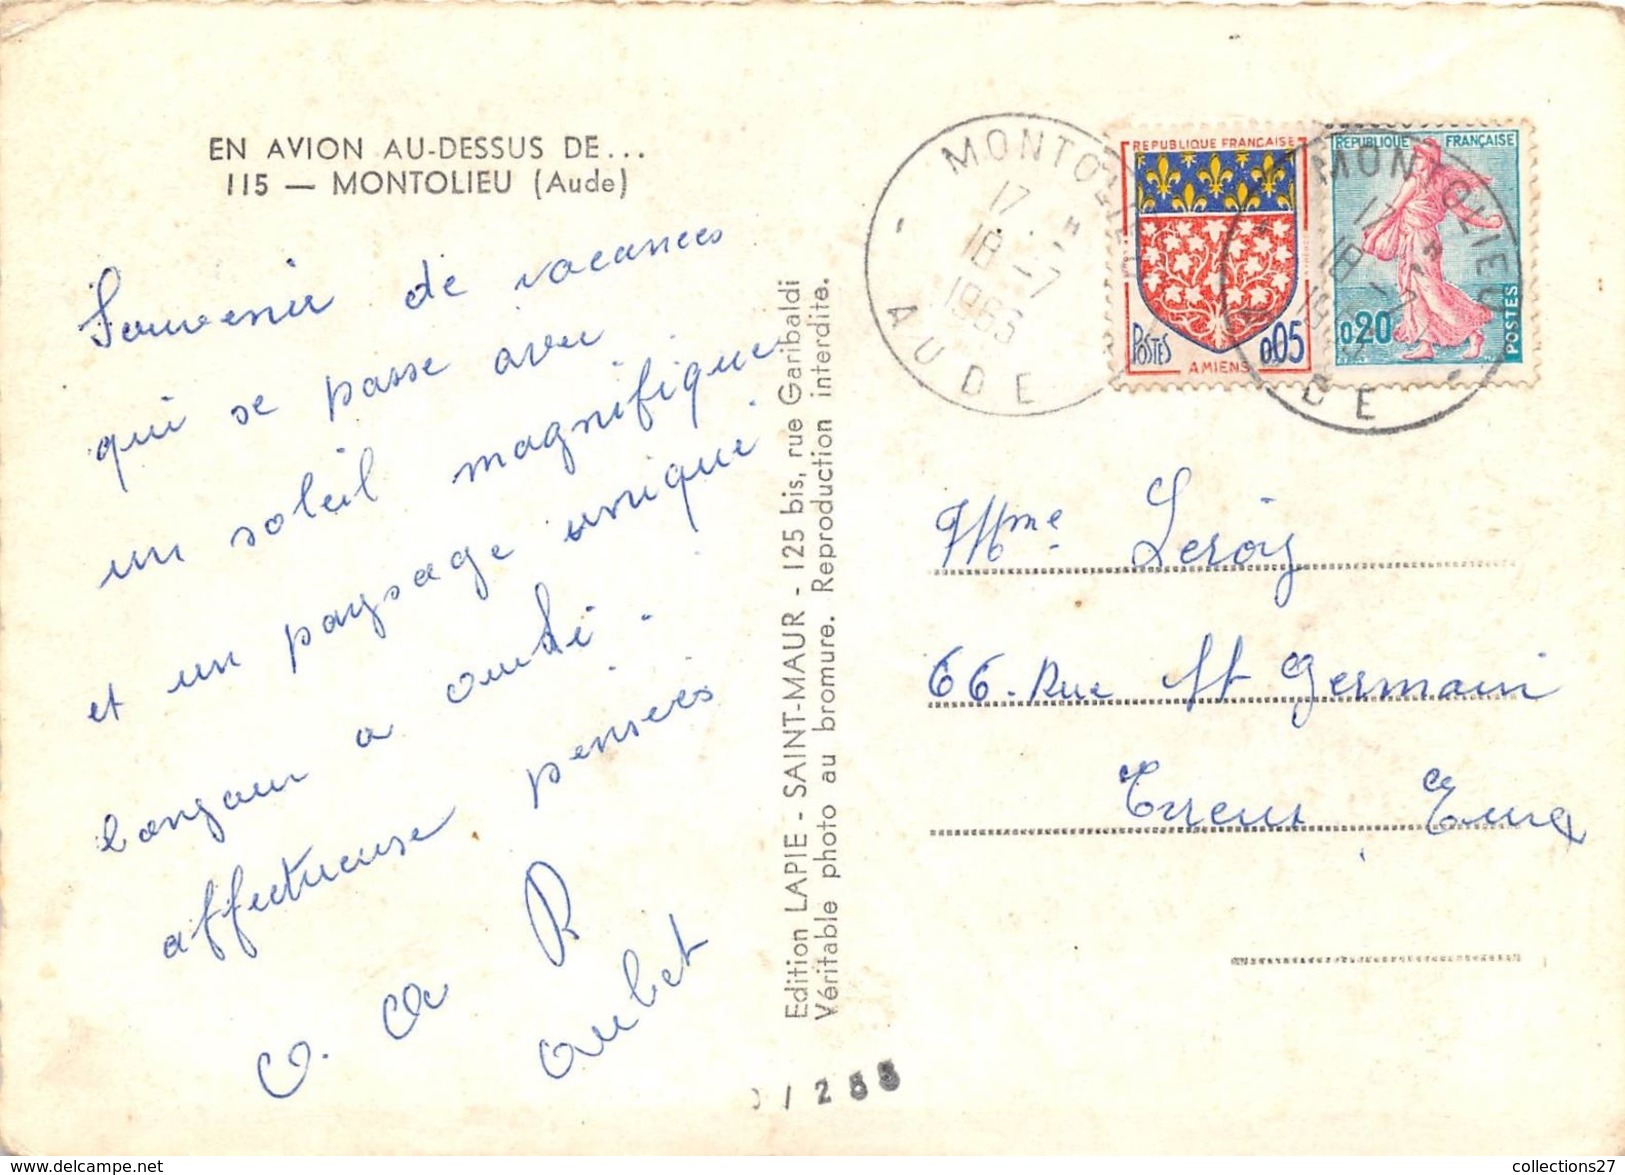 EN AVION AU-DESSUS DE...
115 — MONTOLIEU (Aude)
Souvenir de vacances
qui se passe avec
un soleil magnifique
et un paysage unique
bonjour a
affectueuse pensées
R
aubet
Edition LAPIE - SAINT-MAUR - 125 bis, rue Garibaldi
Véritable photo au bromure. Reproduction interdite.
MONTOLIEU
17 H
18 -7
1963
AUDE
REPUBLIQUE FRANCAISE
POSTES
0,05
AMIENS
REPUBLIQUE FRANÇAISE
0,20
POSTES
MONTOLIEU
17 H
18 -7
DE
Mme Leroy
66. Rue St Germain
Evreux Eure
collections27